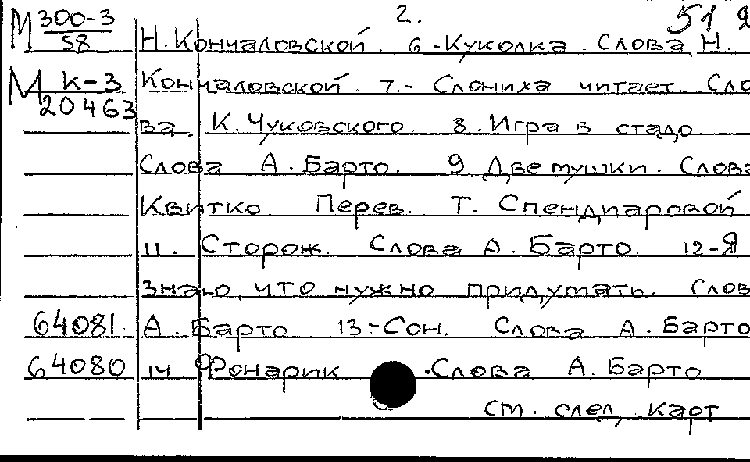 М 300-3 2. 51
58 Н. Кончаловской. 6-Куколка. Слова Н.
М К-3 Кончаловской. 7.- Слониха читает. Сло
20463
ва К. Чуковского. 8. Игра в стадо
Слова А. Барто. 9 Две тушки. Слова
Квитко. Перев. Т. Спендиаровой
11. Сторож. Слова А. Барто 12-Я
знаю, что нужно придумать. Слов
64081. А. Барто 13-Сон. Слова А. Барто
64080 14 Фонарик. Слова А. Барто
См. след. карт